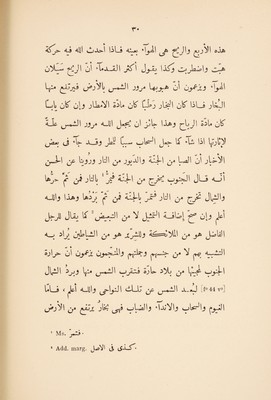 ٣٠
هذه الأربع والريح هى الهوآء بعينه فاذا أحدث الله فيه حركة
هبّت واضطربت وكذا يقول أكثر القدمآء أنّ الريح سَيَلان
الهوآء ويزعمون أنّ هبوبها مرور الشمس بالأرض فيرتفع منها
البُخار فاذا كان البخار رَطْبًا كان مادّة الامطار وإن كان يابسًا
كان مادّة الرياح وهذا جائز ان يجعل اللـه مرور الشمس علّةً
لإثارتها اذا شآء كما جعل السحاب سببًا للمطر وقد جآء فى بعض
الأخبار أنّ الصبا من الجنّة والدَبور من النار ورُوِينا عن الحسن
أنّـه قـال الجَنوب تخرج من الجنّة فتمرّ¹ بالنار فمن ثَمّ حرُّها
والشمال تخرج من النار فتمرّ بالجنّة فمن ثَمّ بَرْدُها وهذا واللـه
أعلم وإن صحّ إضافة التمثيل لا من التبعيض² كما يقال للرجل
الفاضل هو من الملائكة وللشِرّير هو من الشياطين يُراد بـه
التشبيه بهم لا من جنسهم وجملتهم والمنجّمون يزعمون أنّ حرارة
الجنوب لمجيئها من بلاد حارّة فتقرب الشمس منها وبردُ الشمال
[f° 44 v°] لبُعـد الشمس عن تلـك النواحى واللـه أعلم، فـأمّا
الغيوم والسحاب والانداآء والضباب فهى بخارٌ يرتفع من الأرض
¹ Ms. فشمرّ.
² Add. marg. كـذى فى الاصل.